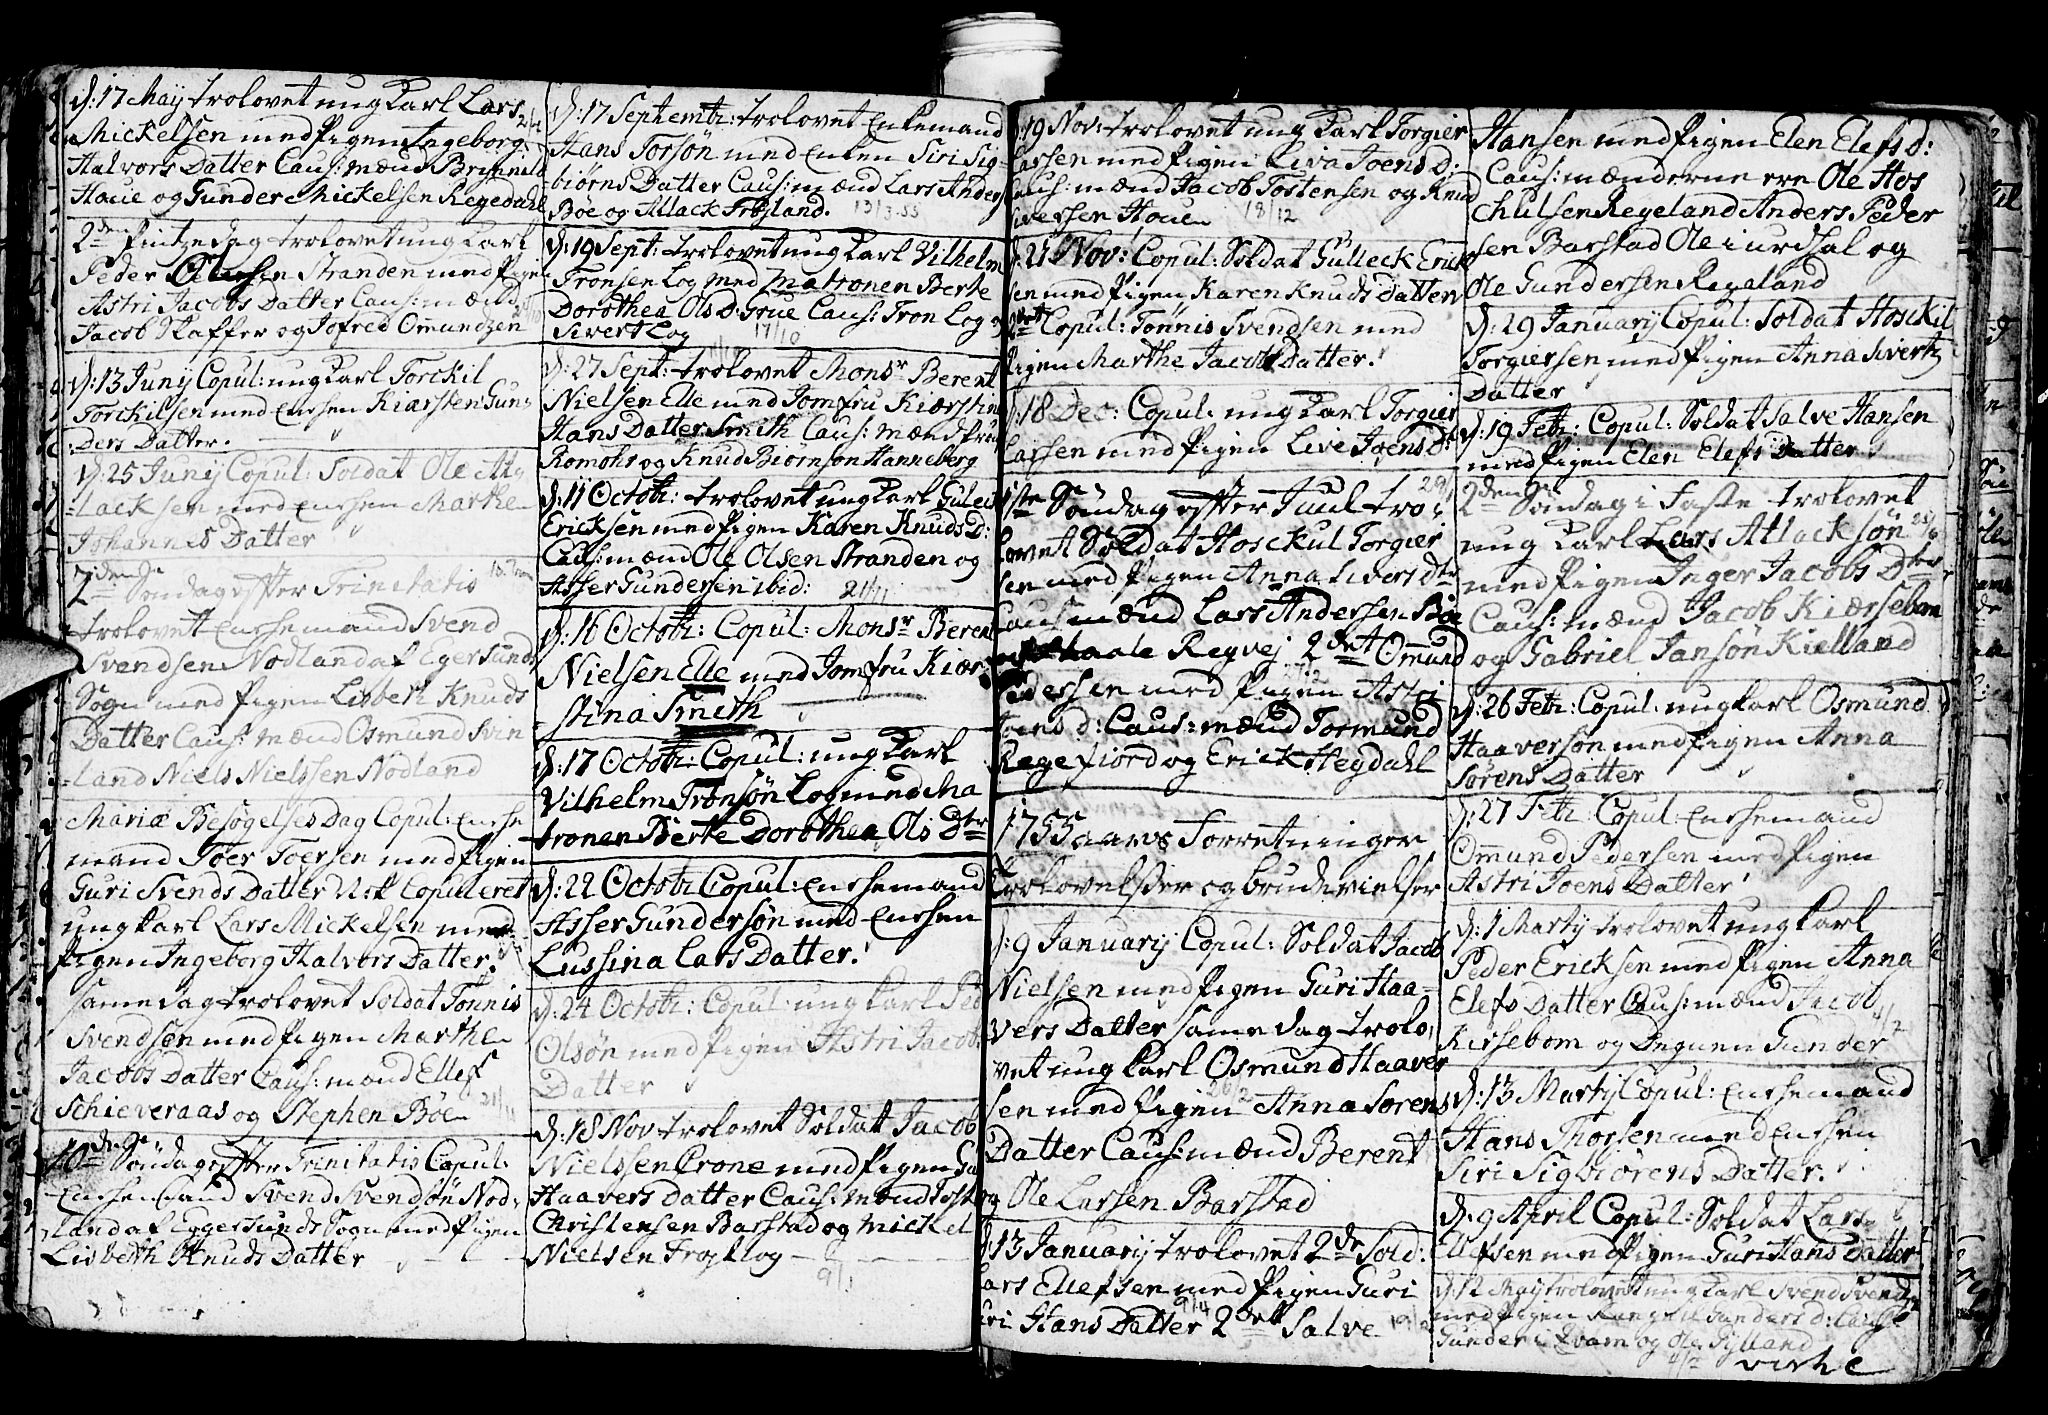 d: 17 Maij trolovet ung Karl Lars
Mickelsen med Pigen Ingeborg
Halvors Datter Caus: mænd Brynild
Houe og Gunder Mickelsen Regedahl
2den Pintzedag trolovet ung Karl
Peder Olersen Stranden med Pigen
Astri Jacobs Datter Caus: mænd
Jacob Skaffer og Jofred Omundzen
d: 13 Junij Copul: ung Karl Torckil
Torckilsen med Encken Kiersten Gun-
ders Datter.
d: 25 Junij Copul: Soldat Ole At-
lacksen med Encken Marthe
Johannes Datter
7den Söndag efter Trinitatis
trolovet Enckemand Svend
Svendsen Nodland af Egersunds
Sogn med Pigen Lisbeth Knuds
Datter Caus: mænd Osmund Svin
land Niels Nielssen Nodland
Mariæ Besøgelses Dag Copul: Encke
mand Toer Toersen med Pigen
Guri Svends Datter Nok Copuleret
ung Karl Lars Mickelsen med
Pigen Ingeborg Halvors Datter.
same dag trolovet Soldat Tönnis
Svendsen med Pigen Marthe
Jacobs Datter Caus: mænd Ellef
Schieveraas og Stephen Böe 21/11
10de Söndag efter Trinitatis Copul:
Enckemand Svend Svendsön Nod-
land af Eggersunds Sogn med Pigen
Lisbeth Knuds Datter
d: 17 Septembr: trolovet Enkemand
Hans Torsön med Enken Siri Sig-
biørns Datter Caus: mænd Lars Anders
Böe og Atlack Frøyland. 13/3 55
d: 19 Sept: trolovet ung Karl Vilhelm
Tronsen Log med Matronen Berte
Dorothea Ols D: Grue Caus: Tron Log og
Sivert Log 17/10
d: 27 Sept: trolovet Monsr Berent
Nielsen Elle med Jomfru Kierstina
Hans Datter Smith Caus: mænd
Romohr og Knud Biørnson Hanneberg
d: 11 Octobr: trolovet ung Karl Guleck
Ericksen med Pigen Karen Knuds D:
Caus: mænd Ole Olsen Stranden og
Asser Gundersen ibid: 21/11
d: 16 Octobr: Copul: Monsr Berent
Nielsen Elle med Jomfru Kier-
stina Smith
d: 17 Octobr: Copul: ung Karl
Vilhelm Tronsön Log med Ma
tronen Berte Dorothea Ols Dtr
d: 22 Octobr Copul: Enckemand
Asser Gundersön med Encken
Lussina Lars Datter.
d: 24 Octobr: Copul: ung Karl Ped
Olsön med Pigen Astri Jacobs
Datter
d: 18 Nov trolovet Soldat Jacob
Nielssen Crone med Pigen Gu
Haavers Datter Caus: mænd Tosten
Christensen Barstad og Mickel
Nielsen Frøytlog
9/1
d: 19 Nov: trolovet ung Karl Torgier
Larsen med Pigen Liva Joens D:
Caus: mænd Jacob Tostensen og Knud
Sivertsen Houen 18/12
d: 21 Nov: Copul: Soldat Gulleck Erick
sen med Pigen Karen Knuds Datter
Copul: Tönnis Svendsen med
Pigen Marthe Jacobs Datter.
d: 18 Dec: Copul: ung Karl Torgier
Larsen med Pigen Live Joens D:
1ste Söndag efter Juul tro-
lovet Soldat Hosckul Torgier
sen med Pigen Anna Sivers Dtr
Caus mænd Lars Andersen Böe
Haale Regvej 2det Omund
Pedersen med Pigen Astri
Joens d: Caus: mænd Tormund
Regefiord og Erick Hegdahl
1755 aars Forretninger
Trolovelser og brudevielser
d: 9 Januarij Copul: Soldat Jacob
Nielsen med Pigen Guri Haa-
vers Datter same dag trolo-
vet ung Karl Osmund Haaver
sen med Pigen Anna Sorens
Datter Caus: mænd Berent
og Ole Larsen Barstad
d: 13 Januarij trolovet 2de Sold:
Lars Ellefsen med Pigen Guri
Hans Datter 2det Salve
Hansen med Pigen Elen Elefs D:
Caus: mænderne ere Ole Hos
chulsen Regeland Anders Peder
sen Barstad Ole i urdsal og
Ole Gundersen Regeland
d: 29 Januarij Copul: Soldat Hosckil
Torgiersen med Pigen Anna Sivertz
Datter
d: 19 Febr: Copul: Soldat Salve Hansen
med Pigen Elen Elefs Datter
2den Söndag i Faste trolovet
ung Karl Lars Atlacksön
med Pigen Inger Jacobs Dtter
Caus: mænd Jacob Kiersebom
og Gabriel Jansön Kielland
d: 26 Febr: Copul: ung Karl Osmund
Haaversön med Pigen Anna
Sörens Datter
d: 27 Febr: Copul: Enckemand
Omund Pedersen med Pigen
Astri Joens Datter
d: 1 Martij trolovet ung Karl
Peder Ericksen med Pigen Anna
Elefs Datter Caus: mænd Jacob
Kirsebom og Degnen Gunder
d: 13 Martij Copul: Enckemand
Hans Thorsen med Encken
Siri Sigbiörens Datter.
d: 9 April Copul: Soldat Lars
Ellefsen med Pigen Guri Hans Datter
d: 12 Maij trolovet ung Karl Svend Svend
med Pigen Rangnil Gunders d: Caus:
Gunder i Qvam og Ole Gylland